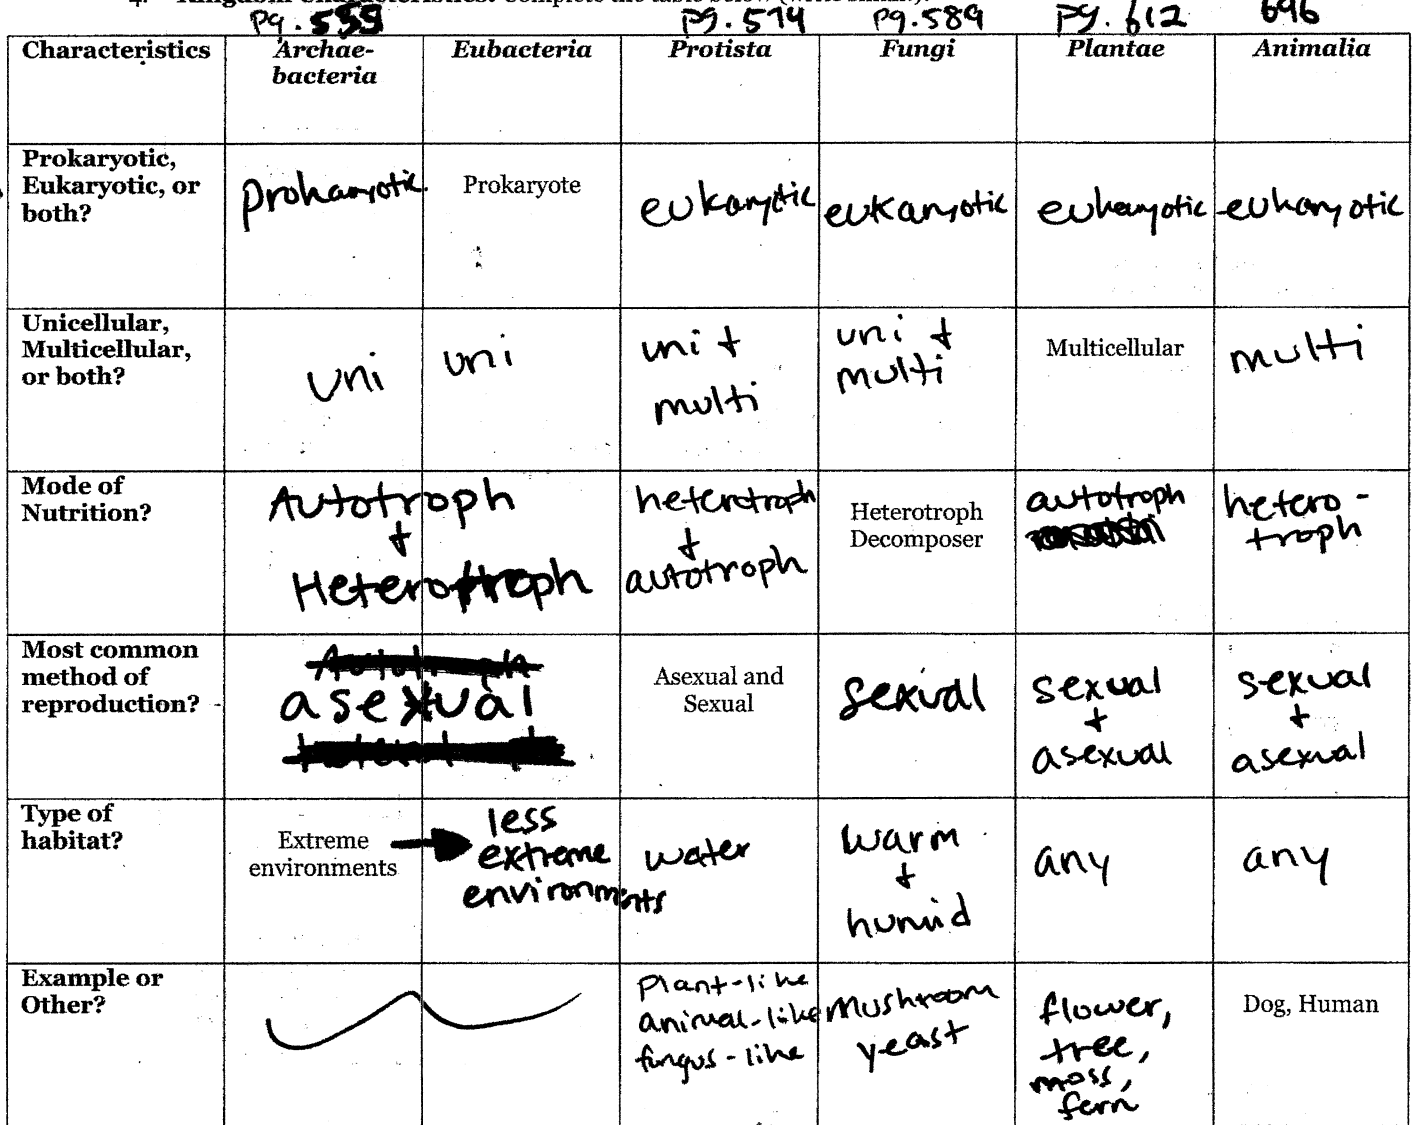 4. Kingdom Characteristics: Complete the table below (write small!).
pg. 555 pg. 574 pg. 589 pg. 612 696
Characteristics Archae- Eubacteria Protista Fungi Plantae Animalia
bacteria
Prokaryotic,
Eukaryotic, or
both?
prokaryotic
Prokaryote
eukaryotic
eukaryotic
eukaryotic
eukaryotic
Unicellular,
Multicellular,
or both?
uni
uni
uni +
multi
uni +
multi
Multicellular
multi
Mode of
Nutrition?
Autotroph
+
Heterotroph
heterotroph
+
autotroph
Heterotroph
Decomposer
autotroph
hetero-
troph
Most common
method of
reproduction?
asexual
Asexual and
Sexual
sexual
sexual
+
asexual
sexual
+
asexual
Type of
habitat?
Extreme
environments
less
extreme
environments
water
warm
+
humid
any
any
Example or
Other?
plant-like
animal-like
fungus-like
mushroom
yeast
flower,
tree,
moss,
fern
Dog, Human